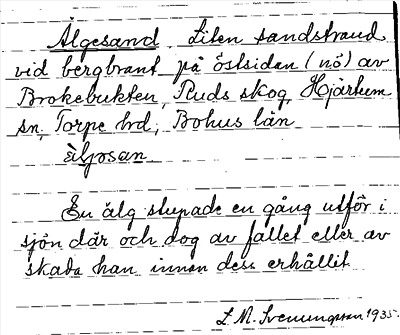 Älgesand Liten sandstrand
vid bergbrant på östsidan (nö) av
Brokebukten, Ruds skog, Hjärtum
sn, Torpe hd, Bohus län
äljosan
En älg stupade en gång utför i
sjön där och dog av fallet eller av
skada han innan dess erhållit
L.M. Svenungsson 1935.